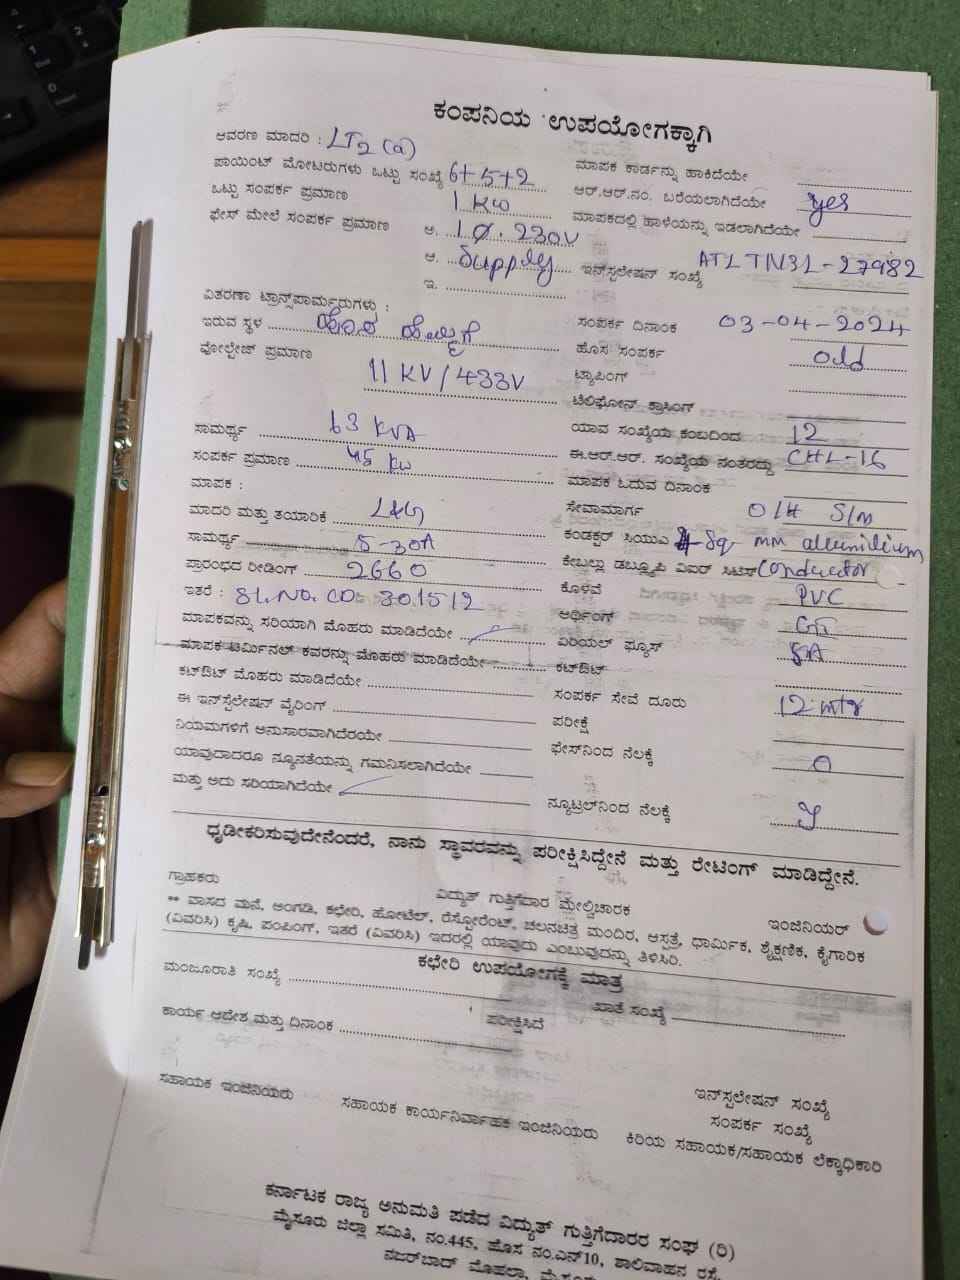 ಕಂಪನಿಯ ಉಪಯೋಗಕ್ಕಾಗಿ
ಆವರಣ ಮಾದರಿ : LT2 (a)
ಪಾಯಿಂಟ್ ಮೋಟರುಗಳು ಒಟ್ಟು ಸಂಖ್ಯೆ 6+5+2
ಮಾಪಕ ಕಾರ್ಡನ್ನು ಹಾಕಿದೆಯೇ
ಒಟ್ಟು ಸಂಪರ್ಕ ಪ್ರಮಾಣ 1 KW
ಆರ್.ಆರ್.ನಂ. ಬರೆಯಲಾಗಿದೆಯೇ yes
ಫೇಸ್ ಮೇಲೆ ಸಂಪರ್ಕ ಪ್ರಮಾಣ ಅ. 1Ø. 230V
ಮಾಪಕದಲ್ಲಿ ಹಾಳೆಯನ್ನು ಇಡಲಾಗಿದೆಯೇ
ಆ. Supply
ಇನ್‌ಸ್ಟಲೇಷನ್ ಸಂಖ್ಯೆ ATLTN31-27982
ಇ.
ವಿತರಣಾ ಟ್ರಾನ್ಸ್‌ಪಾರ್ಮರುಗಳು :
ಇರುವ ಸ್ಥಳ
ಸಂಪರ್ಕ ದಿನಾಂಕ 03-04-2024
ವೋಲ್ಟೇಜ್ ಪ್ರಮಾಣ 11 KV/433V
ಹೊಸ ಸಂಪರ್ಕ Old
ಟ್ಯಾಪಿಂಗ್
ಟೆಲಿಫೋನ್ ಕ್ರಾಸಿಂಗ್
ಸಾಮರ್ಥ್ಯ 63 KVA
ಯಾವ ಸಂಖ್ಯೆಯ ಕಂಬದಿಂದ 12
ಸಂಪರ್ಕ ಪ್ರಮಾಣ 45 KW
ಈ.ಆರ್.ಆರ್. ಸಂಖ್ಯೆಯ ನಂತರದ್ದು CHL-16
ಮಾಪಕ :
ಮಾಪಕ ಓದುವ ದಿನಾಂಕ
ಮಾದರಿ ಮತ್ತು ತಯಾರಿಕೆ L&G
ಸೇವಾಮಾರ್ಗ O/H S/M
ಸಾಮರ್ಥ್ಯ 5-30A
ಕಂಡಕ್ಟರ್ ಸಿಯುಎ Sq mm aluminium
ಪ್ರಾರಂಭದ ರೀಡಿಂಗ್ 2660
ಕೇಬಲ್ಲು ಡಬ್ಲ್ಯೂಪಿ ವಿಐಆರ್ ಸಿಟಿಸ್ Conductor
ಇತರೆ : Sl.No. CD 301512
ಕೊಳವೆ PVC
ಮಾಪಕವನ್ನು ಸರಿಯಾಗಿ ಮೊಹರು ಮಾಡಿದೆಯೇ
ಅರ್ಥಿಂಗ್ GI
ಮಾಪಕ ಟರ್ಮಿನಲ್ ಕವರನ್ನು ಮೊಹರು ಮಾಡಿದೆಯೇ
ಏರಿಯಲ್ ಫ್ಯೂಸ್ 5A
ಕಟ್‌ಔಟ್ ಮೊಹರು ಮಾಡಿದೆಯೇ
ಕಟ್‌ಔಟ್
ಈ ಇನ್‌ಸ್ಟಲೇಷನ್ ವೈರಿಂಗ್
ಸಂಪರ್ಕ ಸೇವೆ ದೂರು 12 mtr
ನಿಯಮಗಳಿಗೆ ಅನುಸಾರವಾಗಿದೆರಯೇ
ಪರೀಕ್ಷೆ
ಯಾವುದಾದರೂ ನ್ಯೂನತೆಯನ್ನು ಗಮನಿಸಲಾಗಿದೆಯೇ
ಫೇಸ್‌ನಿಂದ ನೆಲಕ್ಕೆ 0
ಮತ್ತು ಅದು ಸರಿಯಾಗಿದೆಯೇ
ನ್ಯೂಟ್ರಲ್‌ನಿಂದ ನೆಲಕ್ಕೆ
ಧೃಡೀಕರಿಸುವುದೇನೆಂದರೆ, ನಾನು ಸ್ಥಾವರವನ್ನು ಪರೀಕ್ಷಿಸಿದ್ದೇನೆ ಮತ್ತು ರೇಟಿಂಗ್ ಮಾಡಿದ್ದೇನೆ.
ಗ್ರಾಹಕರು ವಿದ್ಯುತ್ ಗುತ್ತಿಗೆದಾರ ಮೇಲ್ವಿಚಾರಕ ಇಂಜಿನಿಯರ್
** ವಾಸದ ಮನೆ, ಅಂಗಡಿ, ಕಛೇರಿ, ಹೋಟೆಲ್, ರೆಸ್ಟೋರೆಂಟ್, ಚಲನಚಿತ್ರ ಮಂದಿರ, ಆಸ್ಪತ್ರೆ, ಧಾರ್ಮಿಕ, ಶೈಕ್ಷಣಿಕ, ಕೈಗಾರಿಕ
(ವಿವರಿಸಿ) ಕೃಷಿ, ಪಂಪಿಂಗ್, ಇತರೆ (ವಿವರಿಸಿ) ಇದರಲ್ಲಿ ಯಾವುದು ಎಂಬುವುದನ್ನು ತಿಳಿಸಿರಿ.
ಕಛೇರಿ ಉಪಯೋಗಕ್ಕೆ ಮಾತ್ರ
ಮಂಜೂರಾತಿ ಸಂಖ್ಯೆ ಖಾತೆ ಸಂಖ್ಯೆ
ಕಾರ್ಯ ಆದೇಶ ಮತ್ತು ದಿನಾಂಕ ಪರೀಕ್ಷಿಸಿದೆ
ಇನ್‌ಸ್ಟಲೇಷನ್ ಸಂಖ್ಯೆ
ಸಂಪರ್ಕ ಸಂಖ್ಯೆ
ಸಹಾಯಕ ಇಂಜಿನಿಯರು ಸಹಾಯಕ ಕಾರ್ಯನಿರ್ವಾಹಕ ಇಂಜಿನಿಯರು ಕಿರಿಯ ಸಹಾಯಕ/ಸಹಾಯಕ ಲೆಕ್ಕಾಧಿಕಾರಿ
ಕರ್ನಾಟಕ ರಾಜ್ಯ ಅನುಮತಿ ಪಡೆದ ವಿದ್ಯುತ್ ಗುತ್ತಿಗೆದಾರರ ಸಂಘ (ರಿ)
ಮೈಸೂರು ಜಿಲ್ಲಾ ಸಮಿತಿ, ನಂ.445, ಹೊಸ ನಂ.ಎನ್10, ಶಾಲಿವಾಹನ ರಸ್ತೆ,
ನಜರ್‌ಬಾದ್ ಮೊಹಲ್ಲಾ,